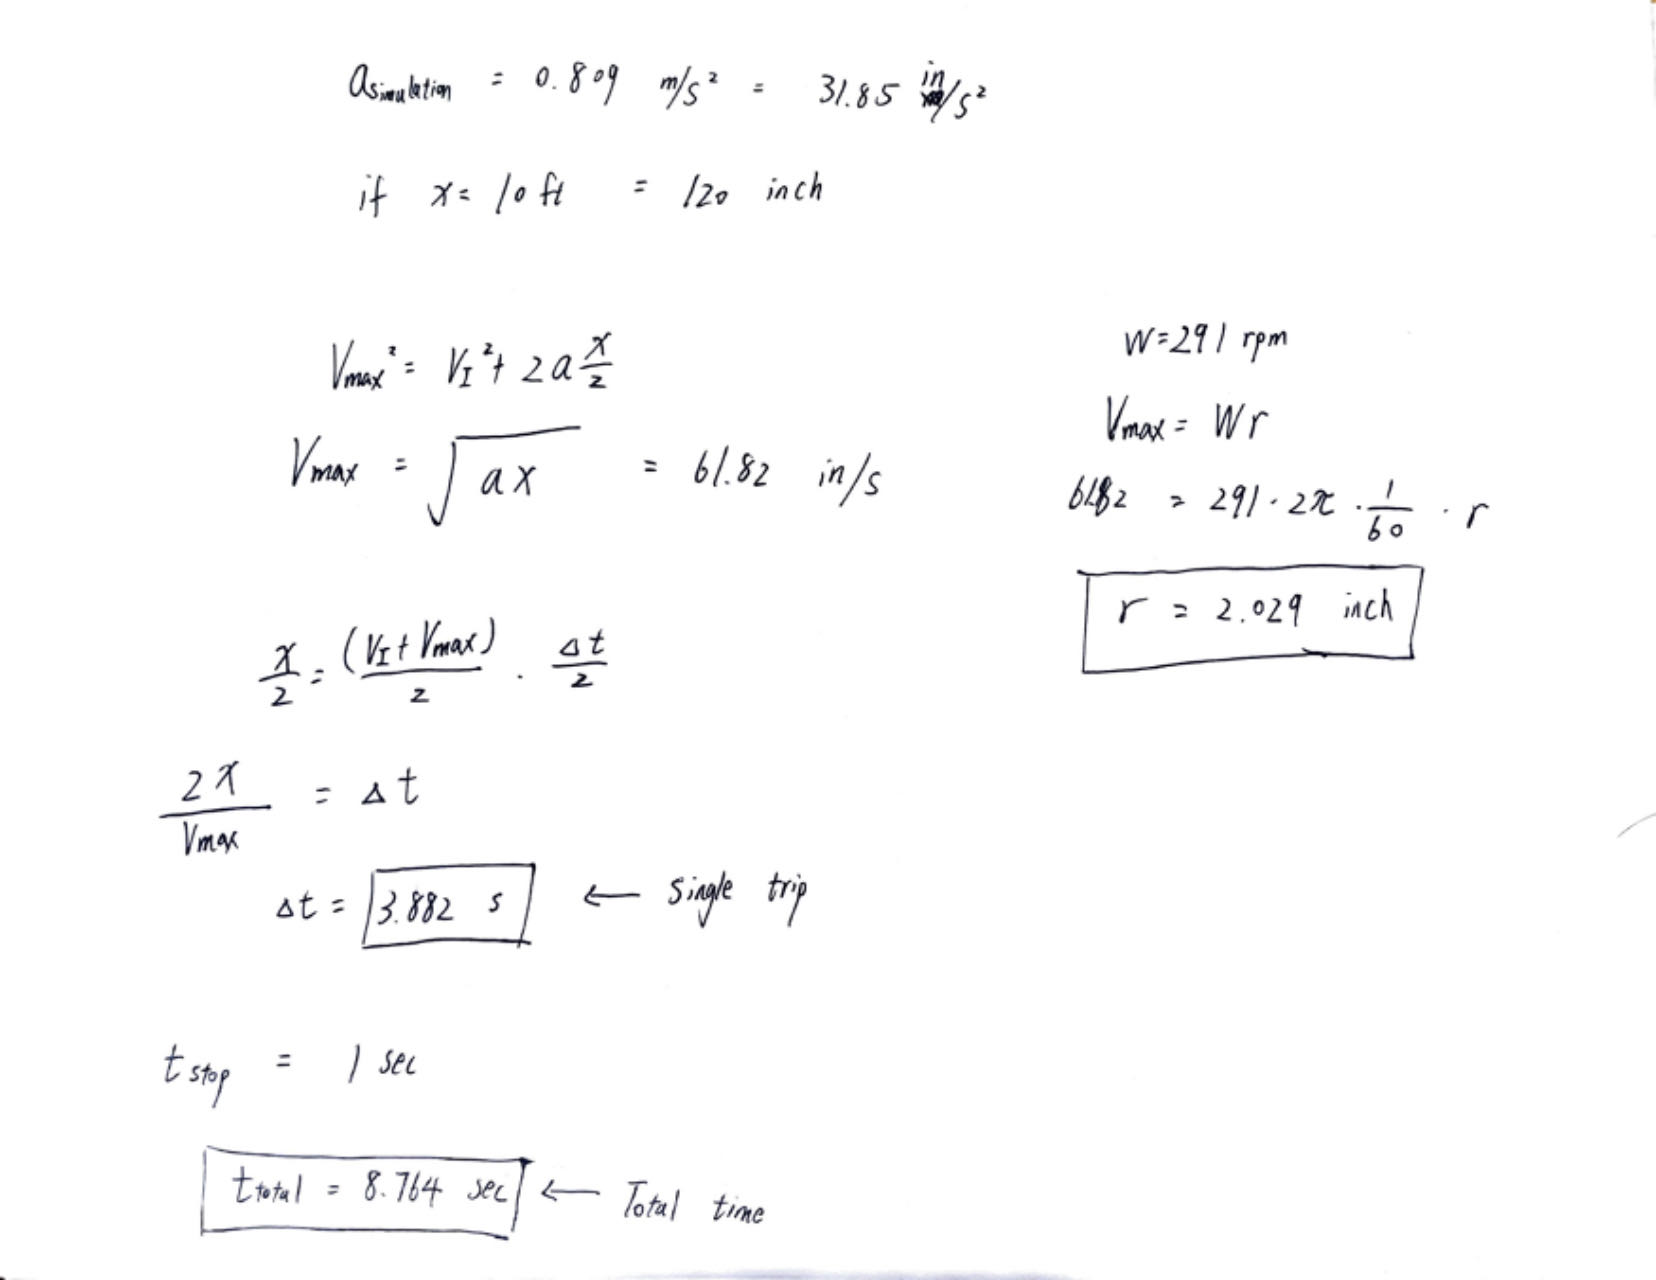 a_simulation = 0.809 m/s² = 31.85 in/s²
if x = 10 ft = 120 inch
V_max² = V_I² + 2a x/2
V_max = √(ax) = 61.82 in/s
x/2 = (V_I + V_max)/2 · Δt/2
2x/V_max = Δt
Δt = 3.882 s ← single trip
t_stop = 1 sec
t_total = 8.764 sec ← Total time
W = 291 rpm
V_max = Wr
61.82 = 291 · 2π · 1/60 · r
r = 2.029 inch